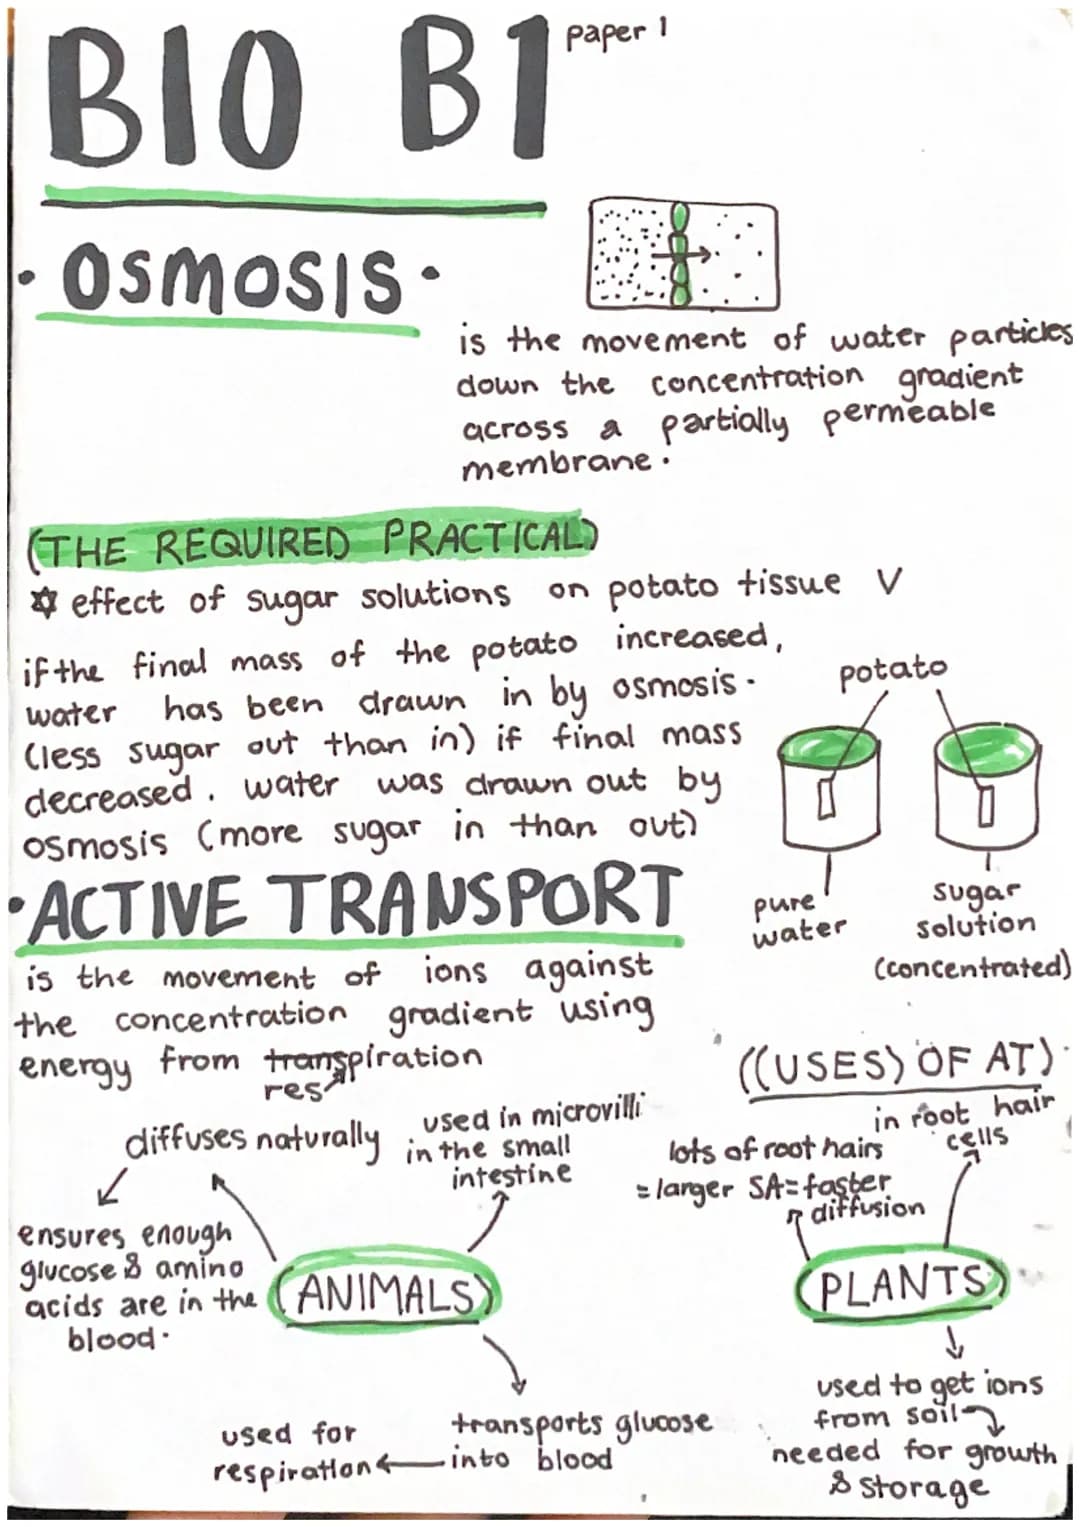 BIO B1 paper 1
· OSMOSIS ·
is the movement of water particles
down the concentration gradient
across a partially permeable
membrane.
(THE REQUIRED PRACTICAL)
effect of sugar solutions on potato tissue V
if the final mass of the potato increased,
water has been drawn in by osmosis.
(less sugar out than in) if final mass
decreased. water was drawn out by
osmosis (more sugar in than out)
potato
pure
water
sugar
solution
(concentrated)
· ACTIVE TRANSPORT
is the movement of ions against
the concentration gradient using
energy from transpiration
res
((USES) OF AT)
diffuses naturally
ensures enough
glucose & amino
acids are in the
blood.
used in microvilli
in the small
intestine
ANIMALS
transports glucose
into blood
used for
respiration
in root hair
cells
lots of root hairs
= larger SA = faster
diffusion
PLANTS
used to get ions
from soil
needed for growth
& storage